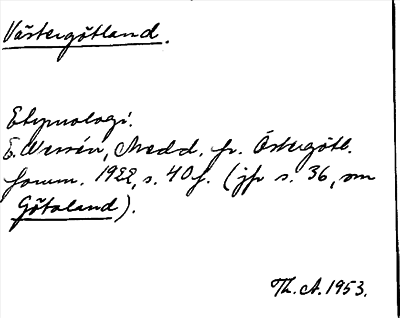 Västergötland.
Etymologi.
E. Wessén, Medd. fr. Östergötl.
fornm. 1922, s. 40 f. (jfr s. 36, om
Götaland).
Th. A. 1953.